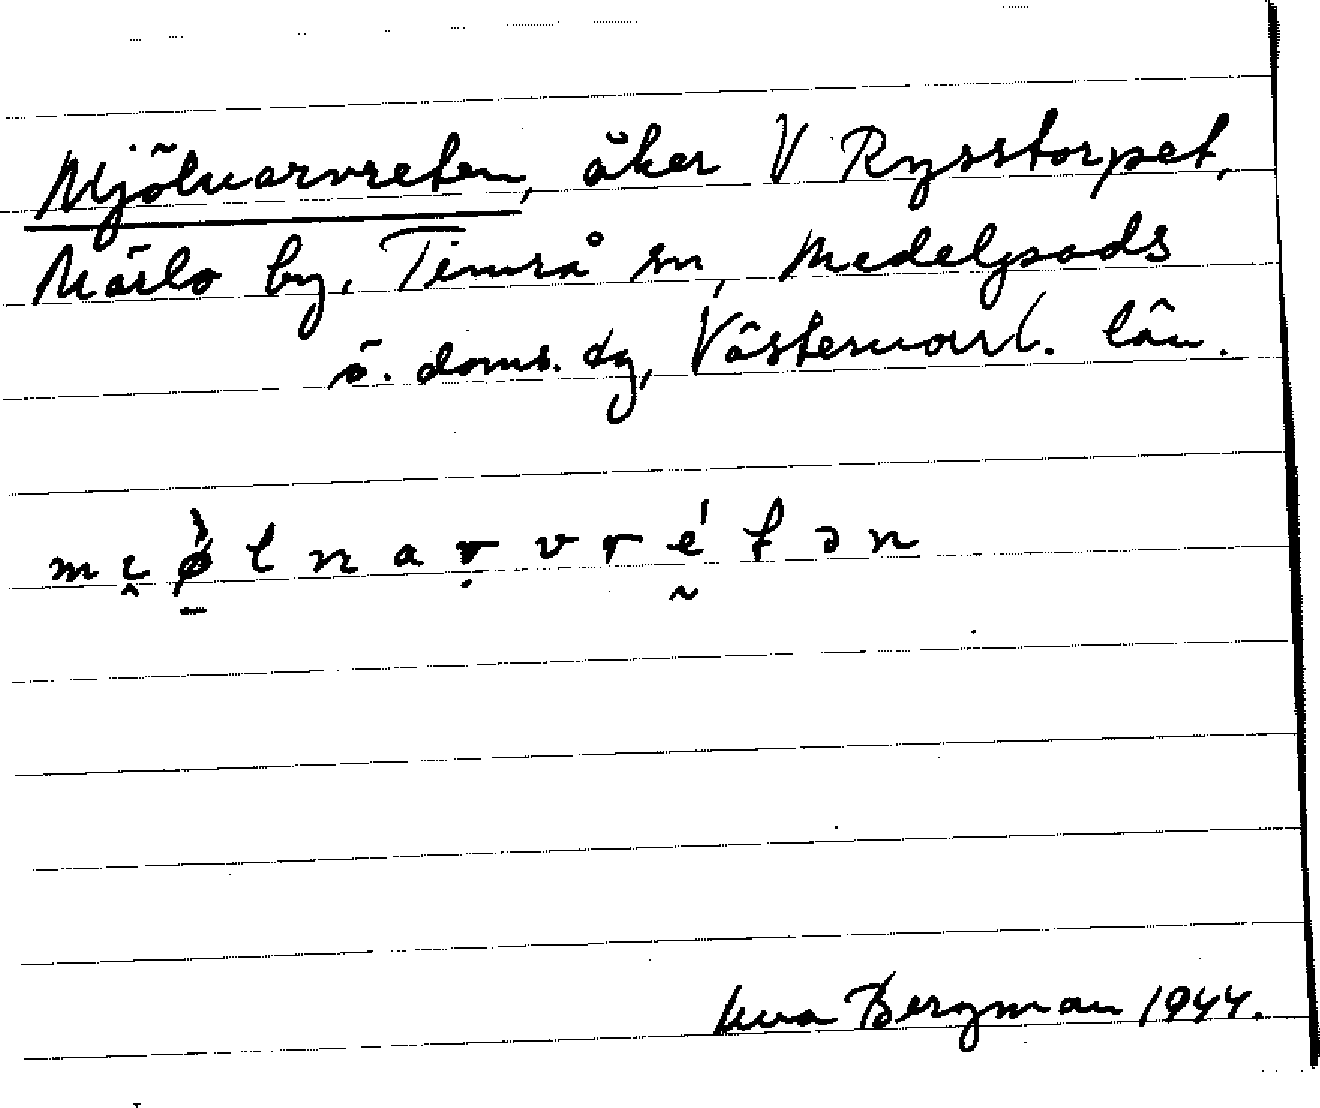 Mjölnarvreten, åker V Rysstorpet,
Märlo by, Timrå sn, Medelpads
ö. doms. dg, Västernorrl. län.
mi̯ø̠̀lnaṛvrḛ́tən
Bergman 1944.